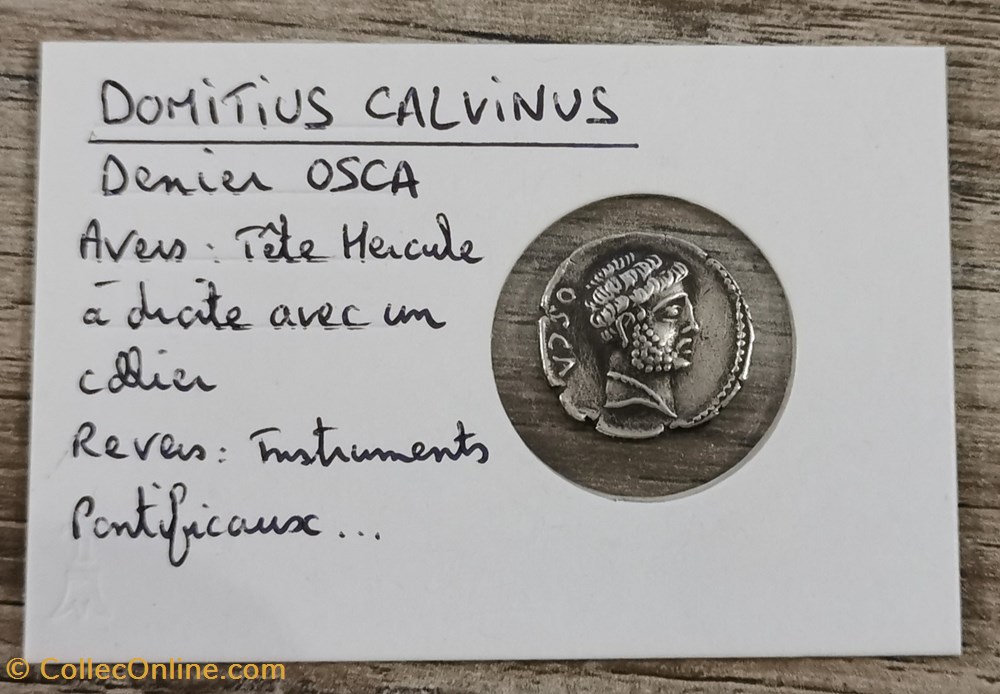 DOMITIUS CALVINUS
Denier OSCA
Avers : Tête Hercule
à droite avec un
collier
Revers : Instruments
Pontificaux...
OSCA
© CollecOnline.com